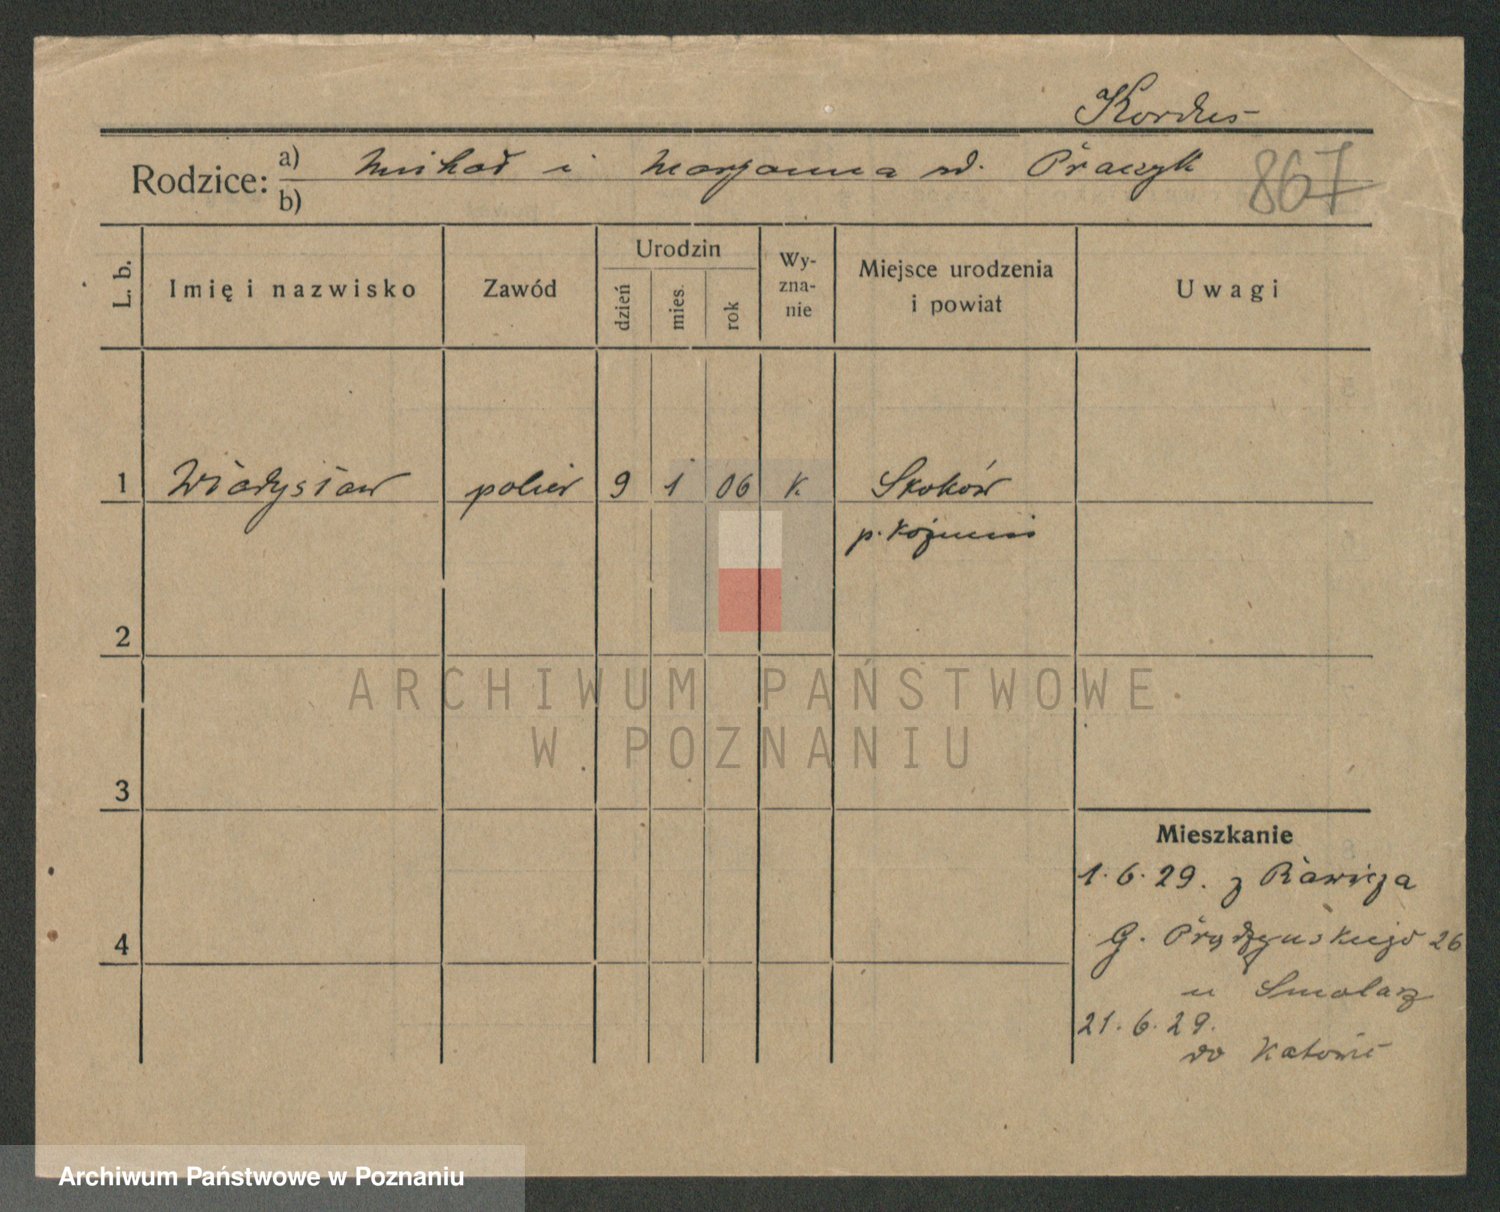 Kordus
Rodzice: a) Michał i Marjanna rd. Praczyk
b)
867
L. b.
Imię i nazwisko
Zawód
Urodzin
dzień
mies.
rok
Wy-
zna-
nie
Miejsce urodzenia
i powiat
Uwagi
1 Władysław polier 9 1 06 k. Skoków
p. Koźmin
2
3
4
Mieszkanie
1. 6. 29. z Rawicza
G. Prądzyńskiego 26
u Smolarz
21. 6. 29.
do Katowic
ARCHIWUM PAŃSTWOWE
W POZNANIU
Archiwum Państwowe w Poznaniu